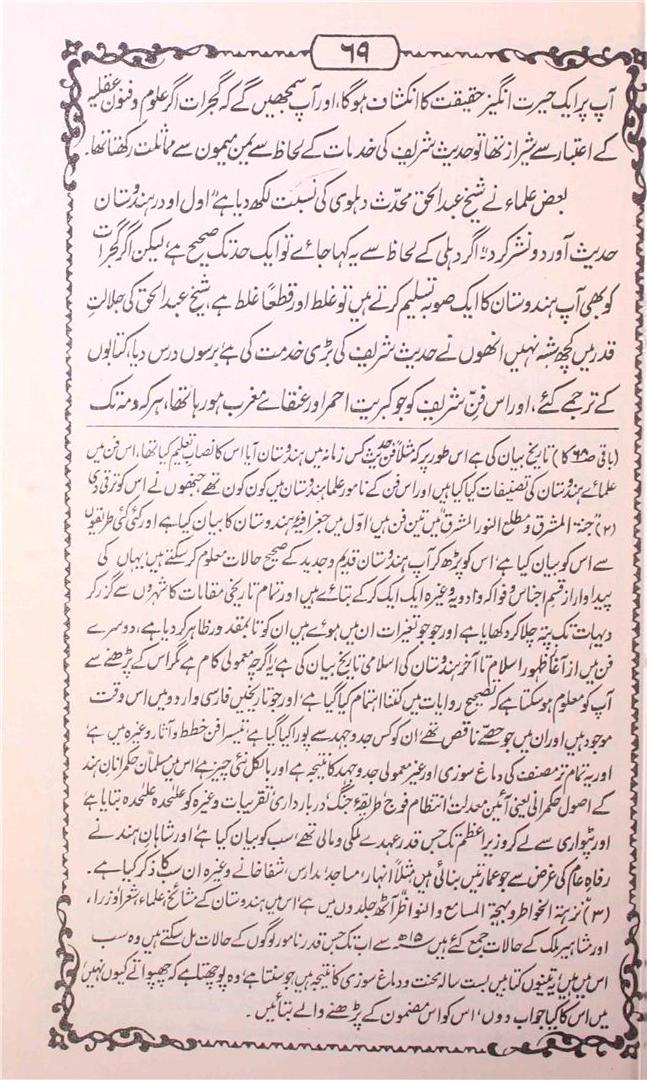 ۶۹
آپ پر ایک حیرت انگیز حقیقت کا انکشاف ہوگا، اور آپ سمجھیں گے کہ گجرات اگر علوم و فنون عقلیہ
کے اعتبار سے شیراز تھا تو حدیث شریف کی خدمات کے لحاظ سے یمن میمون سے مماثلت رکھتا تھا۔
بعض علماء نے شیخ عبدالحق محدّث دہلوی کی نسبت لکھ دیا ہے "اول او در ہندوستان
حدیث آورد و نشر کرد" اگر دہلی کے لحاظ سے یہ کہا جائے تو ایک حد تک صحیح ہے لیکن اگر گجرات
کو بھی آپ ہندوستان کا ایک صوبہ تسلیم کرتے ہیں تو غلط اور قطعاً غلط ہے، شیخ عبدالحق کی جلالتِ
قدر میں کچھ شبہ نہیں انھوں نے حدیث شریف کی بڑی خدمت کی ہے برسوں درس دیا، کتابوں
کے ترجمے کئے، اور اس فنِ شریف کو جو کبریت احمر اور عنقائے مغرب ہو رہا تھا، ہر کہ و مہ تک
(باقی ص۶۸ کا) تاریخ بیان کی ہے اس طور پر کہ مثلاً فن حدیث کس زمانہ میں ہندوستان آیا اس کا نصاب تعلیم کیا تھا، اس فن میں
علمائے ہندوستان کی تصنیفات کیا کیا ہیں اور اس فن کے نامور علما ہندوستان میں کون کون تھے جنھوں نے اس کو ترقی دی
(۲) "جنۃ المشرق و مطلع النور المشرق" میں تین فن ہیں اول میں جغرافیۂ ہندوستان کا بیان کیا ہے اور کئی کئی طریقوں
سے اس کو بیان کیا ہے، اس کو پڑھ کر آپ ہندوستان قدیم و جدید کے صحیح حالات معلوم کر سکتے ہیں، یہاں کی
پیداوار از قسم اجناس و فواکہ و ادویہ وغیرہ ایک ایک کر کے بتائے ہیں اور تمام تاریخی مقامات کا شہروں سے گزر کر
دیہات تک پتہ چلا کر دکھایا ہے اور جو جو تغیرات ان میں ہوے ہیں ان کو تا بمقدور ظاہر کر دیا ہے، دوسرے
فن میں از آغاز ظہور اسلام تا آخر ہندوستان کی اسلامی تاریخ بیان کی ہے یہ اگرچہ معمولی کام ہے مگر اس کے پڑھنے سے
آپ کو معلوم ہو سکتا ہے کہ تصحیح روایات میں کتنا اہتمام کیا گیا ہے، اور جو تاریخیں فارسی و اردو میں اس وقت
موجود ہیں اور ان میں جو حصے ناقص تھے، ان کو کس جد و جہد سے پورا کیا گیا ہے، تیسرا فن خطط و آثار وغیرہ میں ہے،
اور یہ تمام تر مصنف کی دماغ سوزی اور غیر معمولی جد و جہد کا نتیجہ ہے اور بالکل نئی چیز ہے، اس میں مسلمان حکمرانان ہند
کے اصول حکمرانی یعنی آئین معدلت، انتظام فوج، طریقۂ جنگ، دربارداری، تقریبات وغیرہ کو علٰحدہ علٰحدہ بتایا ہے،
اور پٹواری سے لے کر وزیر اعظم تک جس قدر عہدے ملکی و مالی تھے، سب کو بیان کیا ہے، اور شاہان ہند نے
رفاہِ عام کی غرض سے جو عمارتیں بنائی ہیں مثلاً انہار، مساجد، مدارس، شفاخانے وغیرہ ان سب کا ذکر کیا ہے۔
(۳) "نزہۃ الخواطر و بہجۃ المسامع والنواظر" آٹھ جلدوں میں ہے، اس میں ہندوستان کے مشائخ، علماء، شعراء، وزراء،
اور مشاہیر ملک کے حالات جمع کئے ہیں ۱۵ھ سے اب تک جس قدر نامور لوگوں کے حالات مل سکتے ہیں وہ سب
اس میں ہیں، یہ تینوں کتابیں بست سالہ محنت و دماغ سوزی کا نتیجہ ہیں، جو سنتا ہے، وہ پوچھتا ہے کہ چھپواتے کیوں نہیں،
میں اس کا کیا جواب دوں، اس کو اس مضمون کے پڑھنے والے بتائیں۔